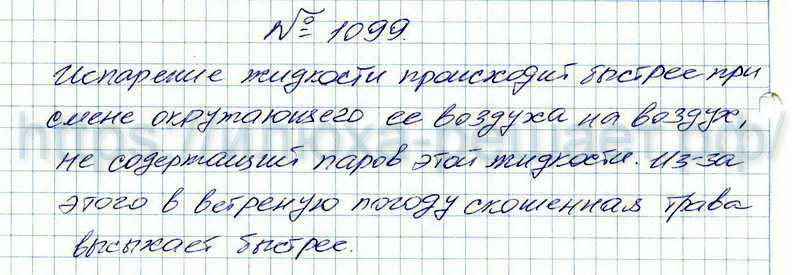 № 1099.
Испарение жидкости происходит быстрее при
смене окружающего ее воздуха на воздух,
не содержащий паров этой жидкости. Из-за
этого в ветреную погоду скошенная трава
высыхает быстрее.